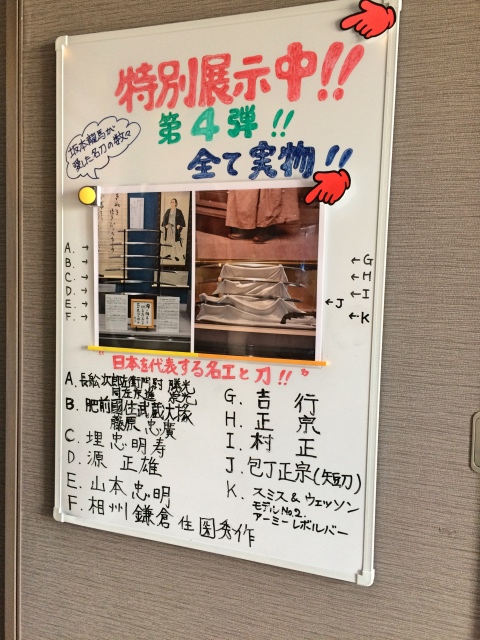 特別展示中!!
第4弾!!
全て実物!!
坂本龍馬が
愛した名刀の数々
A. →
B. →
C. →
D. →
E. →
F. →
←G
←H
←I
←J
←K
"日本を代表する名工と刀!!"
A. 長船次郎左衛門尉 勝光
宗光
B. 肥前國住武蔵大掾
藤原忠廣
C. 埋忠明寿
D. 源 正雄
E. 山本忠明
F. 相州鎌倉住國秀作
G. 吉行
H. 正宗
I. 村正
J. 包丁正宗(短刀)
K. スミス&ウェッソン
モデルNo.2.
アーミーレボルバー